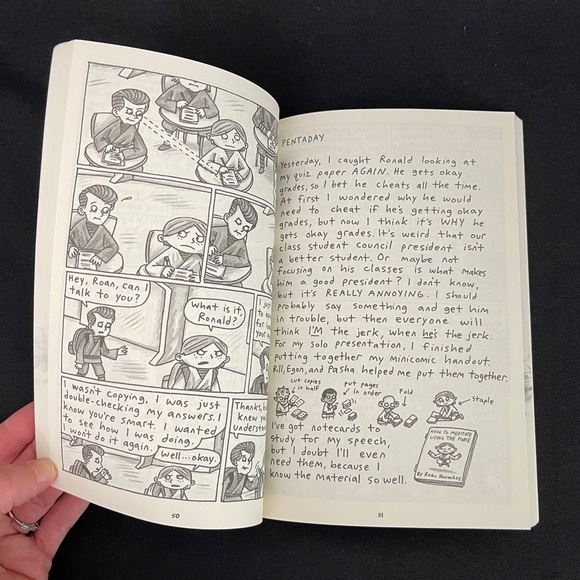 Hey, Roan, can I
talk to you?
What is it,
Ronald?
I wasn't copying, I was just
double-checking my answers. I
know you're smart. I wanted
to see how I was doing.
I won't do it again.
Well...okay.
Thanks,
knew you
50
PENTADAY
Yesterday, I caught Ronald looking at
my quiz paper AGAIN. He gets okay
grades, so I bet he cheats all the time.
At first I wondered why he would
need to cheat if he's getting okay
grades, but now I think it's WHY he
gets okay grades. It's weird that our
class student council president isn't
a better student. Or maybe not
focusing on his classes is what makes
him a good president? I don't know,
but it's REALLY ANNOYING. I should
probably say something and get him
in trouble, but then everyone will
think I'M the jerk, when he's the jerk.
For my solo presentation, I finished
putting together my minicomic handout.
Bill, Egon, and Pasha helped me put them together.
cut copies
in half
put pages
in order
Fold
Staple
I've got notecards to
study for my speech,
but I doubt I'll even
need them, because I
know the material so well.
HOW TO MEDITATE
USING THE FORCE
By Roan Novachez
51